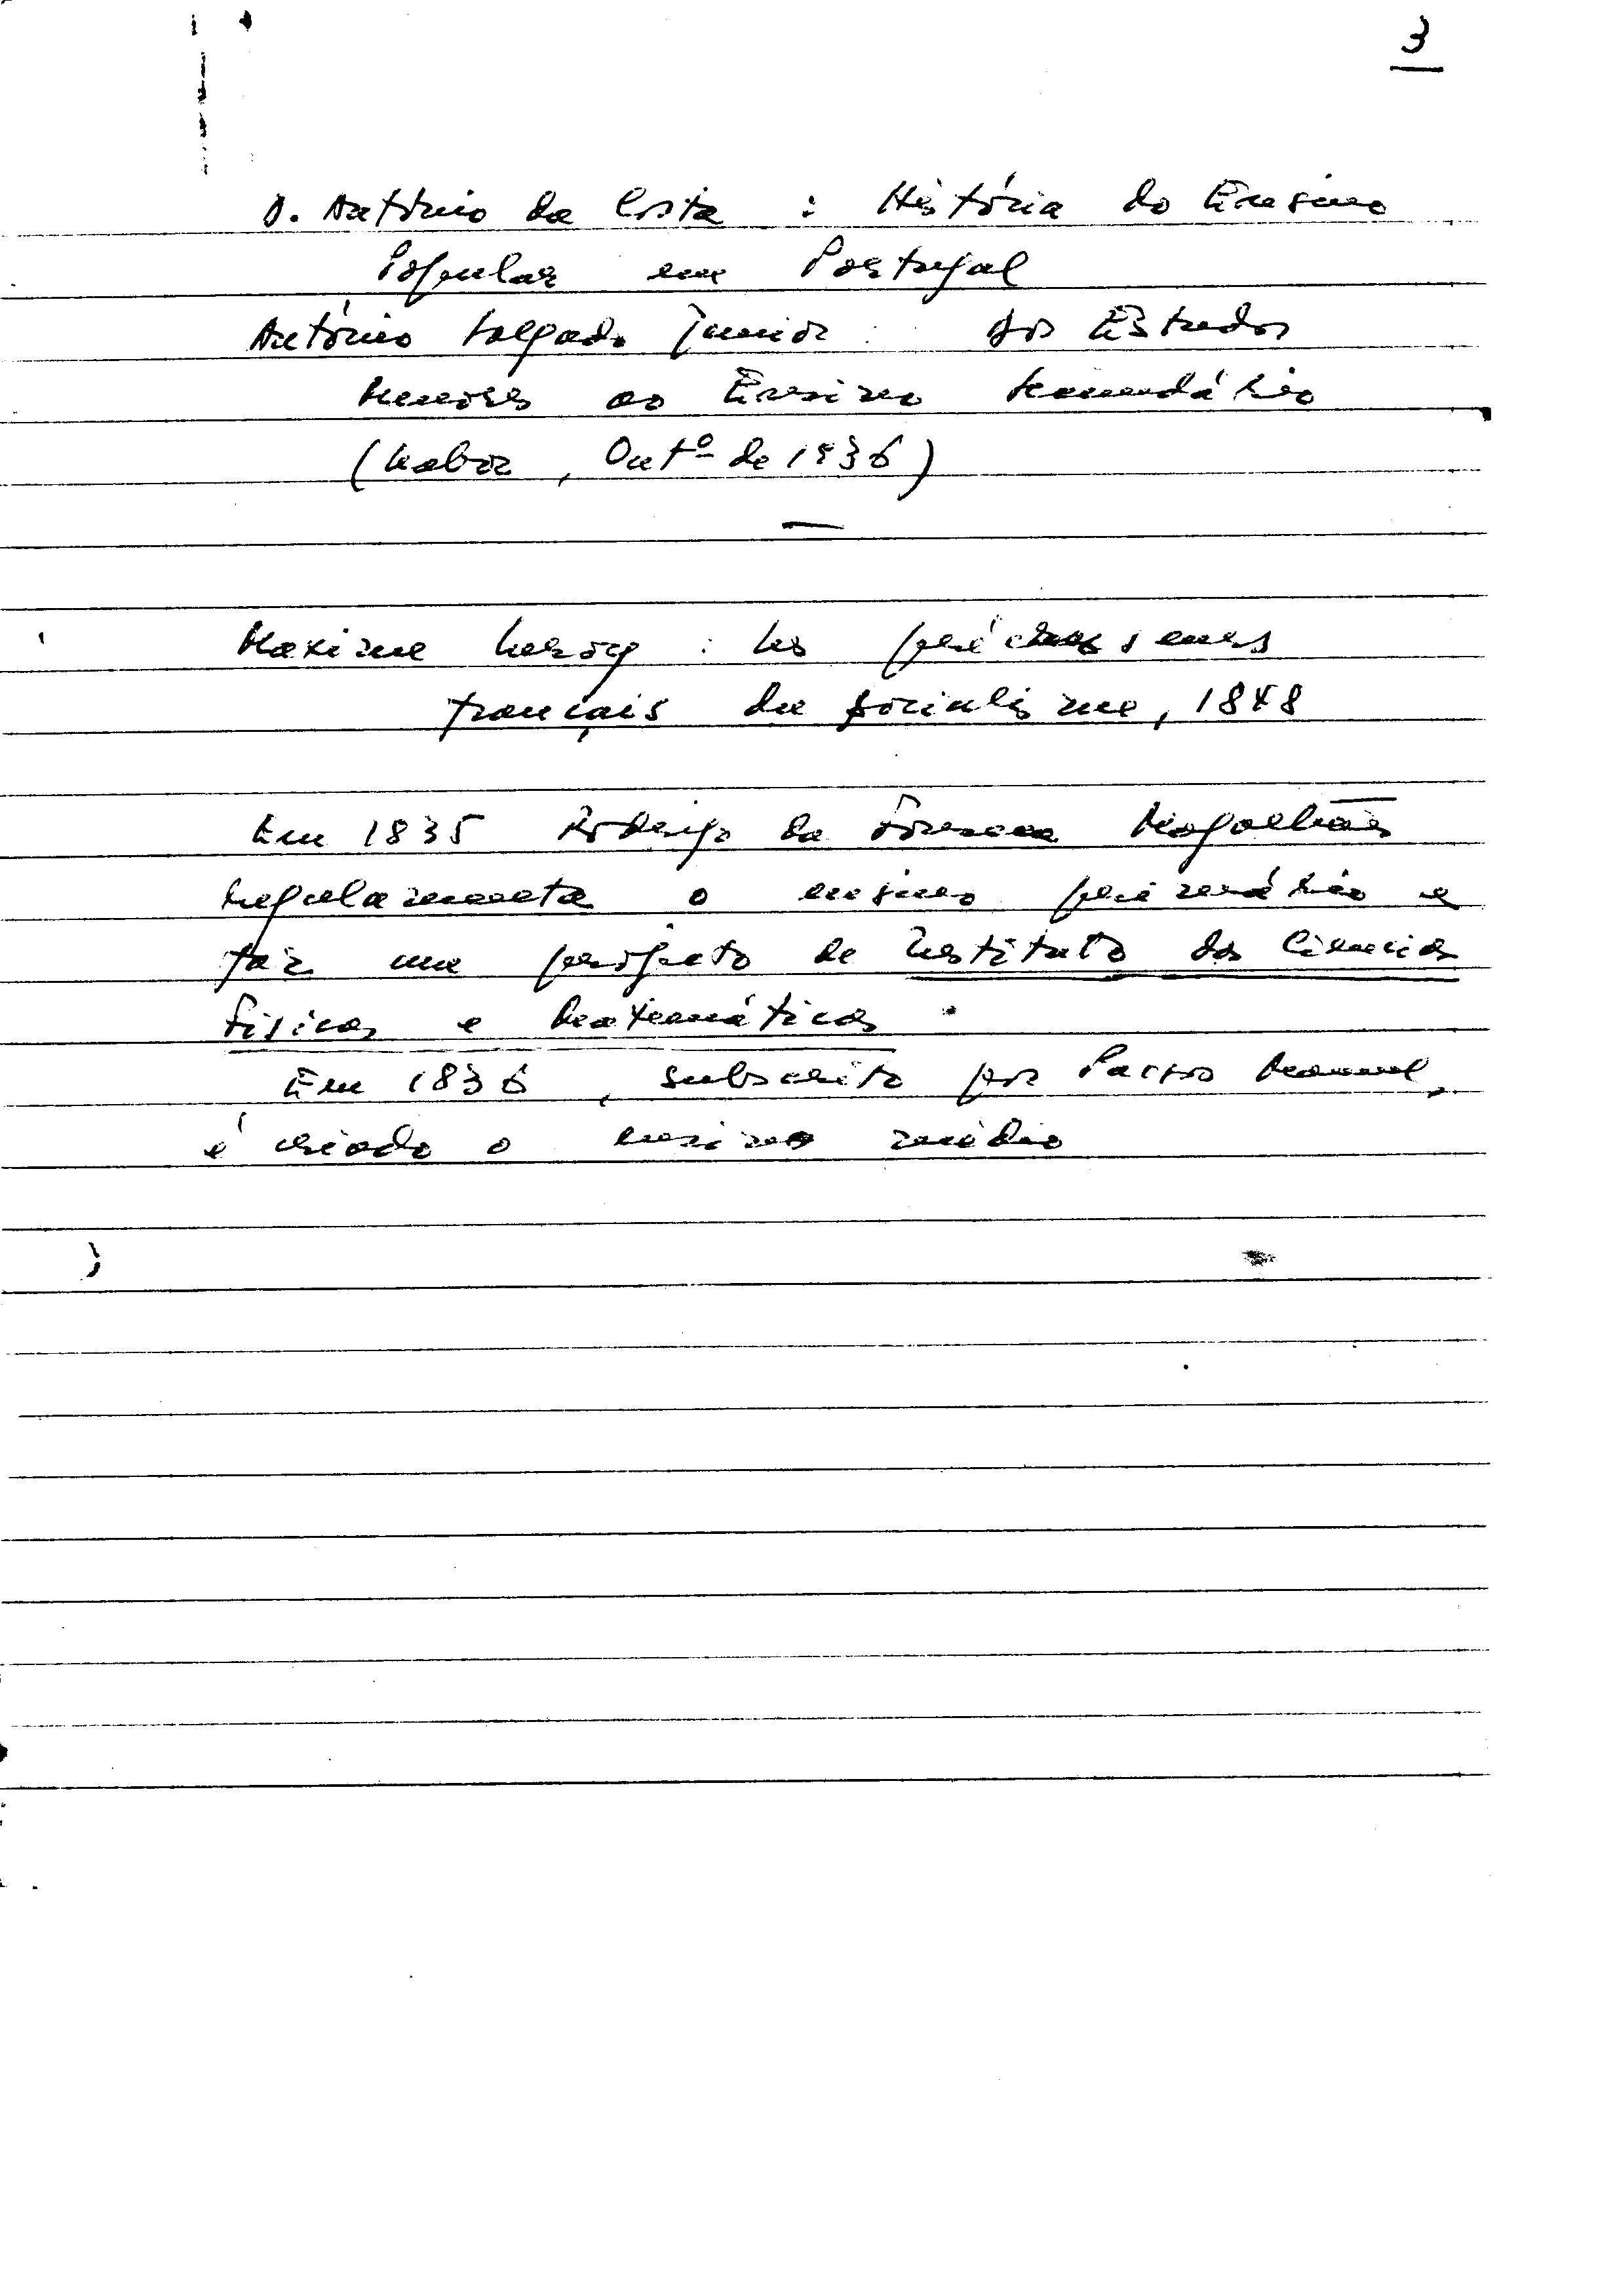 3
D. António da Costa : História do Ensino
Popular em Portugal
António Salgado Junior : Dos Estudos
Menores ao Ensino Secundário
(Labor, Outº de 1936)
Maxime Leroy : Les précurseurs
français du socialisme, 1848
Em 1835 Rodrigo da Fonseca Magalhães
regulamenta o ensino primário e
faz um projecto de Instituto das Ciencias
Fisicas e Matemáticas.
Em 1836, subscrito por Passos Manuel,
é criado o ensino médio